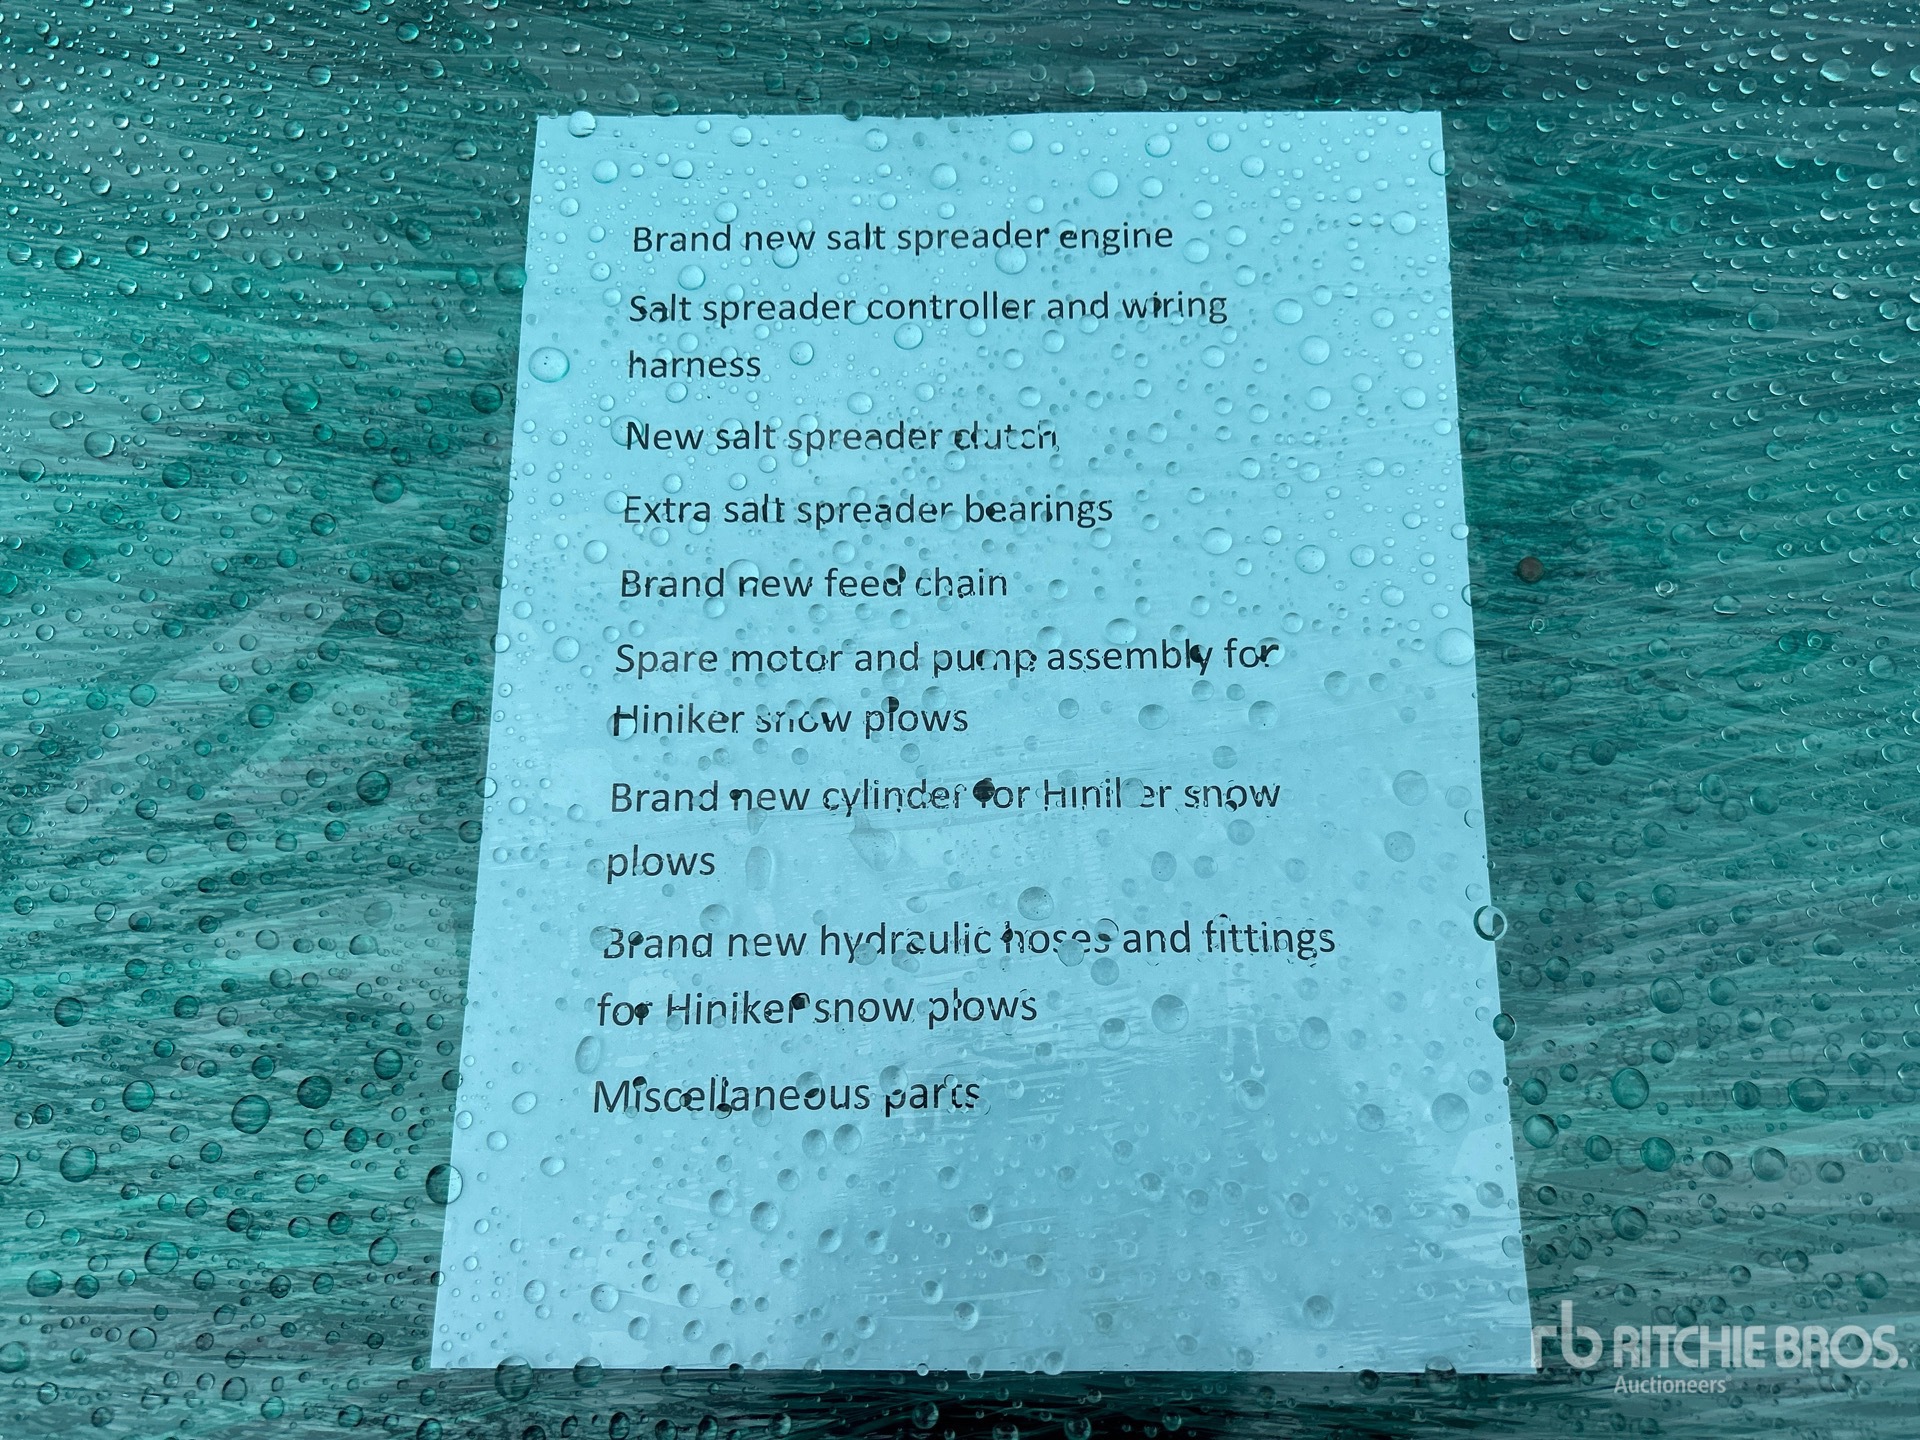 Brand new salt spreader engine
Salt spreader controller and wiring
harness
New salt spreader clutch
Extra salt spreader bearings
Brand new feed chain
Spare motor and pump assembly for
Hiniker snow plows
Brand new cylinder for Hiniker snow
plows
Brand new hydraulic hoses and fittings
for Hiniker snow plows
Miscellaneous parts
rb RITCHIE BROS.
Auctioneers